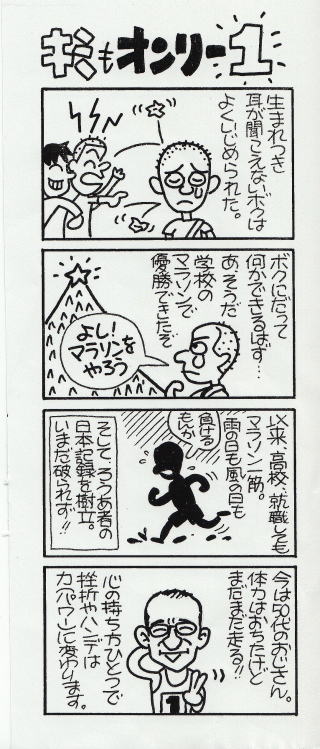 キミもオンリー1
生まれつき
耳が聞こえないボクは
よくいじめられた。
ボクにだって
何かできるはず…
あ、そうだ
学校の
マラソンで
優勝できたぞ
よし!
マラソンを
やろう
以来、高校、就職しても
マラソン一筋。
雨の日も風の日も
負ける
もんか
そして、ろうあ者の
日本記録を樹立。
いまだ破られず!!
今は50代のおじさん。
体力はおちたけど
まだまだ走る!!
心の持ち方ひとつで
挫折やハンデは
力、パワーに変わります。
1